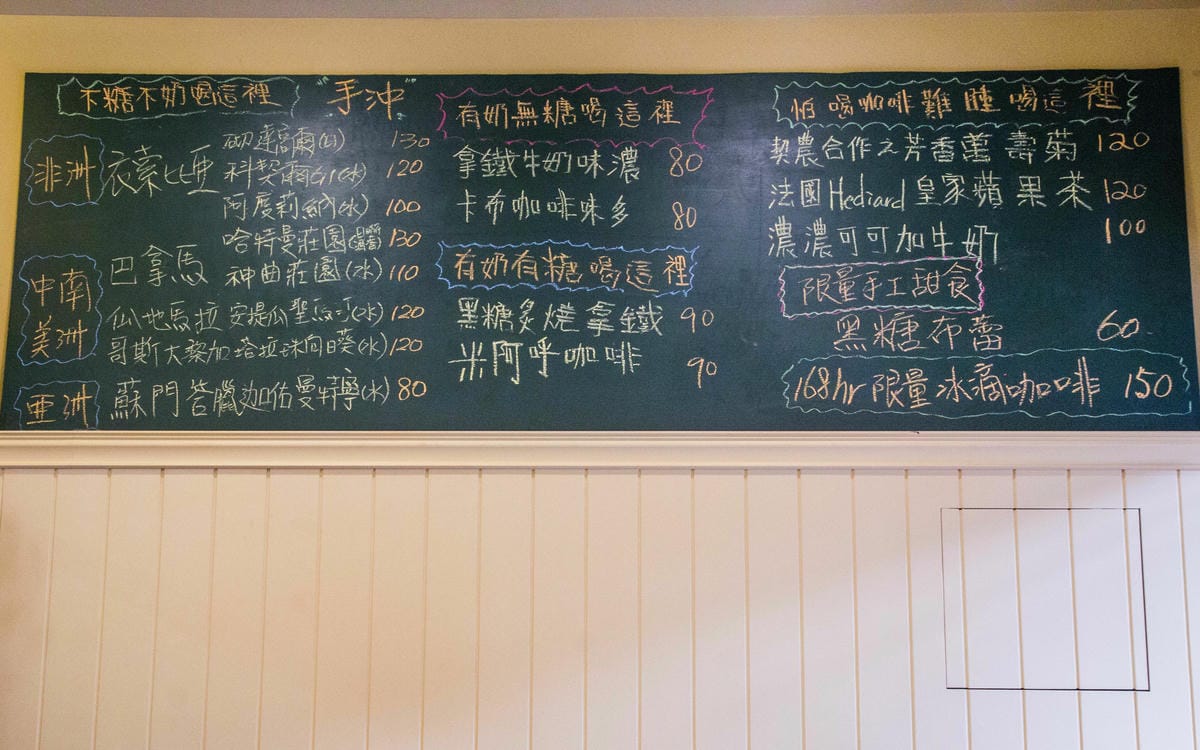 不糖不奶喝這裡
"手沖"
非洲
衣索比亞
130
科契爾G1(水) 120
阿度莉納(水) 100
哈特曼莊園 130
中南美洲
巴拿馬
神曲莊園(水) 110
仙地馬拉 安提瓜聖馬汀(水) 120
哥斯大黎加 塔拉珠向日葵(水) 120
亞洲
蘇門答臘迦佑曼特寧(水) 80
有奶無糖喝這裡
拿鐵牛奶味濃 80
卡布咖啡味多 80
有奶有糖喝這裡
黑糖炙燒拿鐵 90
米阿呼咖啡 90
怕喝咖啡難睡喝這裡
契農合作之芳香萬壽菊 120
法國Hediard皇家蘋果茶 120
濃濃可可加牛奶 100
限量手工甜食
黑糖布蕾 60
168hr限量冰滴咖啡 150